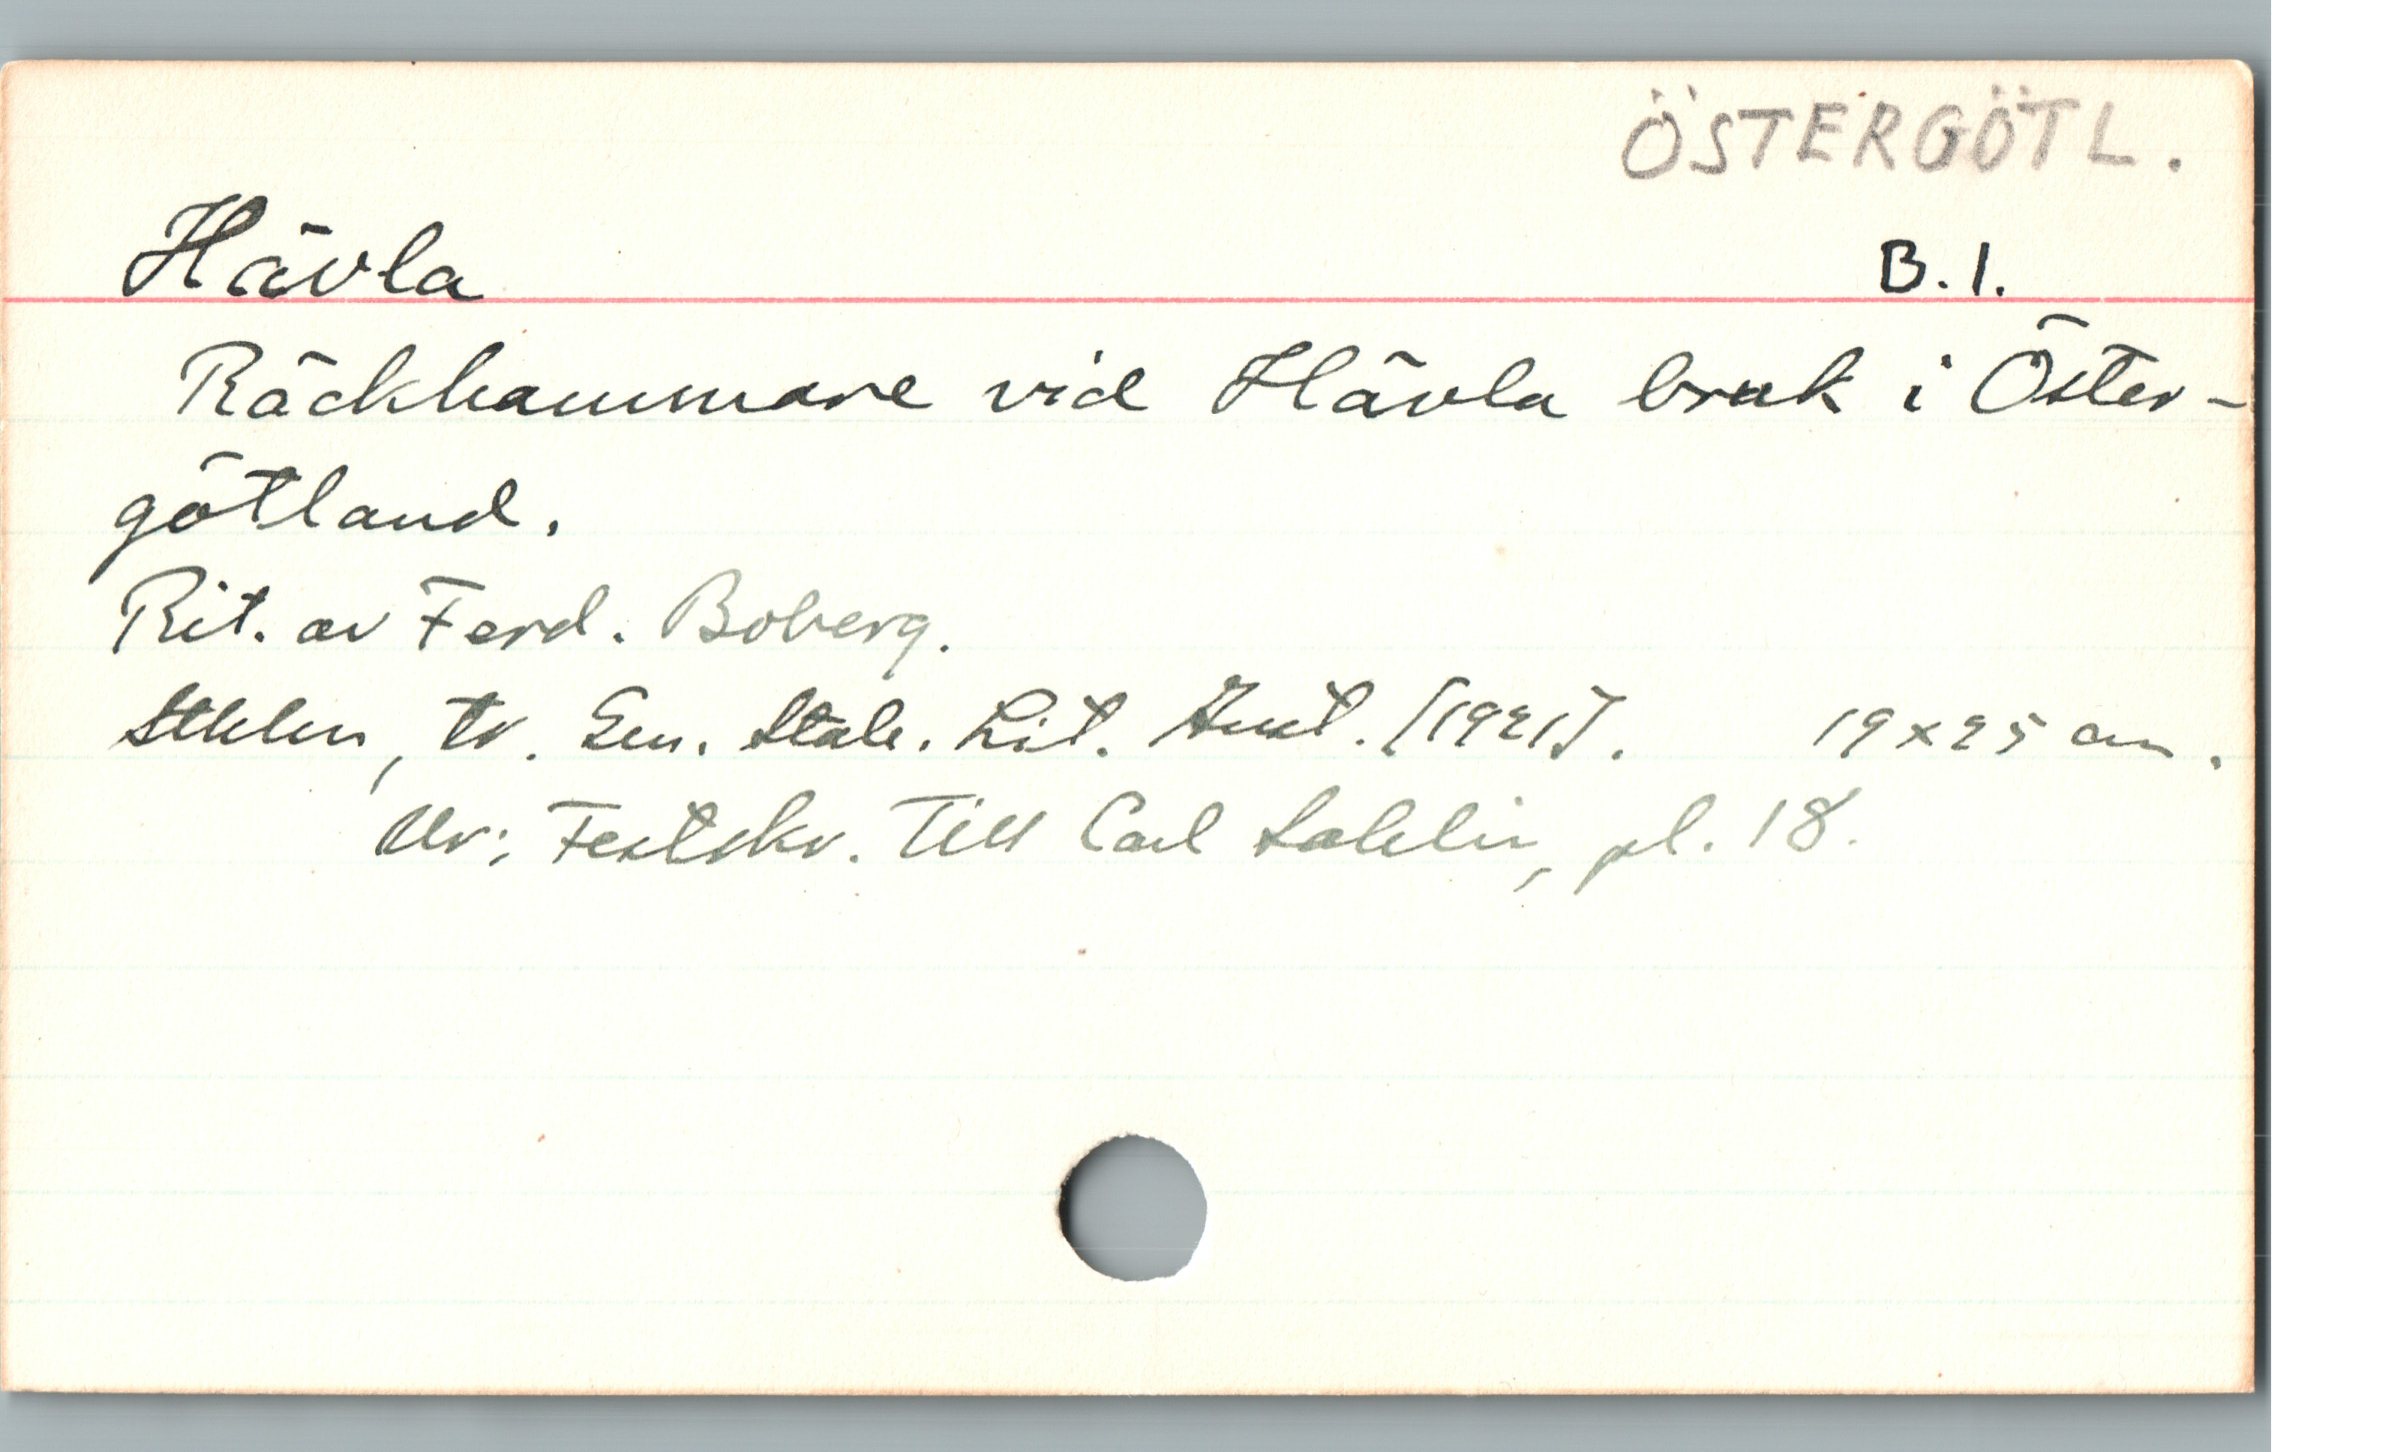 ÖSTERGÖTL.
Hävla B.1.
Räckhammare vid Hävla bruk i Öster-
götland.
Rit. av Ferd. Boberg.
Sthlm, tr. Gen. Stab. Lit. Anst. [1921]. 19 x 25 cm.
Ur: Festskr. Till Carl Sahlin, pl. 18.